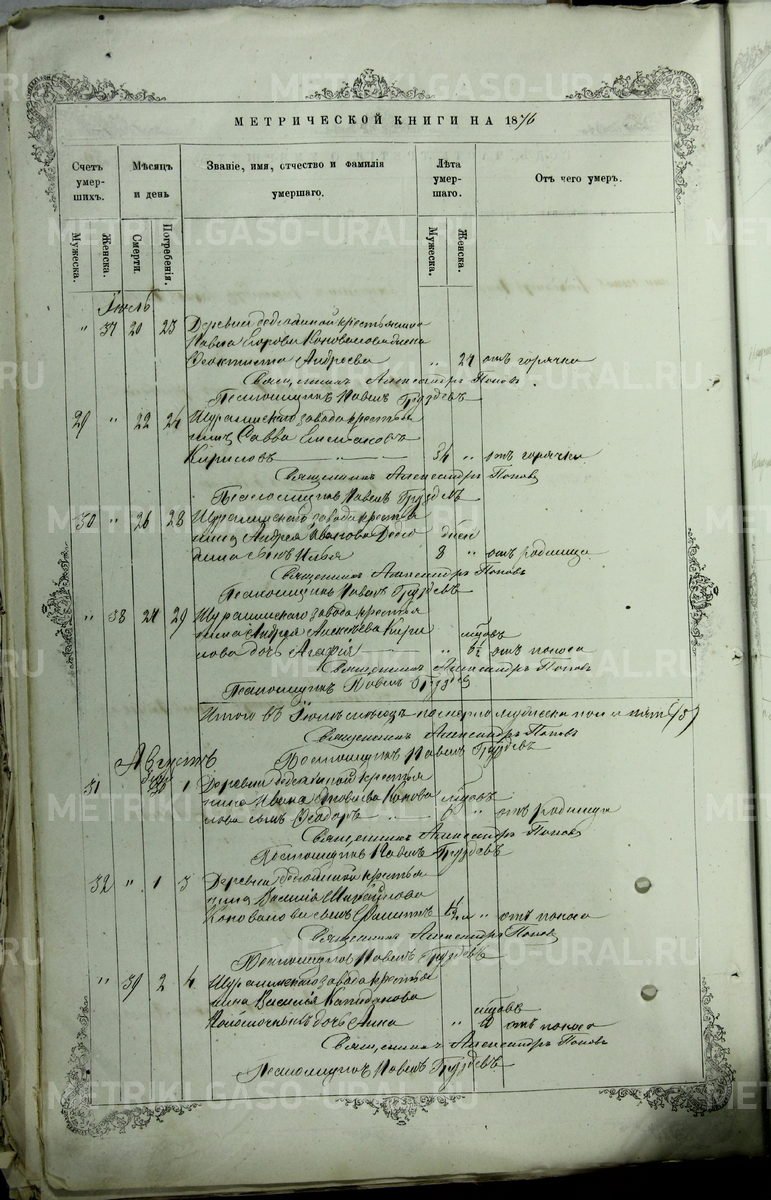 МЕТРИЧЕСКОЙ КНИГИ НА 1876
Счетъ умер- шихъ.
Мѣсяцъ и день
Званіе, имя, отчество и фамилія умершаго.
Лѣта умер- шаго.
Отъ чего умеръ.
Мужеска.
Женска.
Смерти.
Погребенія.
Мужеска.
Женска.
Іюль
" 37 20 23 Деревни крестьянина
Павла Егорова Коновалова жена
Феоктиста Андреева " 21 отъ горячки
Священникъ Александръ Поповъ.
Псаломщикъ Павелъ Груздевъ
29 " 22 24 Шуралинскаго завода крестья
нинъ Савва
Кириловъ 34 " отъ горячки
Священникъ Александръ Поповъ
Псаломщикъ Павелъ Груздевъ
30 " 26 28 Шуралинскаго завода крестья
нина Андрея Иванова дней
сынъ Илья 8 " отъ родимца
Священникъ Александръ Поповъ
Псаломщикъ Павелъ Груздевъ
" 38 29 Шуралинскаго завода крестья
нина Андрея Алексѣева Кири
лова дочь " отъ поноса
Священникъ Александръ Поповъ
Псаломщикъ Павелъ Груздевъ
Итого въ Іюлѣ мѣсяцѣ померло мужеска пола пять (5)
Священникъ Александръ Поповъ
Псаломщикъ Павелъ Груздевъ
Августъ
31 1 Деревни крестья
нина Ивана Конова
лова сынъ Ѳеодоръ " отъ родимца
Священникъ Александръ Поповъ
Псаломщикъ Павелъ Груздевъ
32 " 1 3 Деревни крестья
нина Василія Михайлова
Коновалова сынъ " отъ поноса
Священникъ Александръ Поповъ
Псаломщикъ Павелъ Груздевъ
" 39 2 4 Шуралинскаго завода крестья
нина Василія
дочь Анна " отъ поноса
Священникъ Александръ Поповъ
Псаломщикъ Павелъ Груздевъ
METRIKI.GASO-URAL.RU